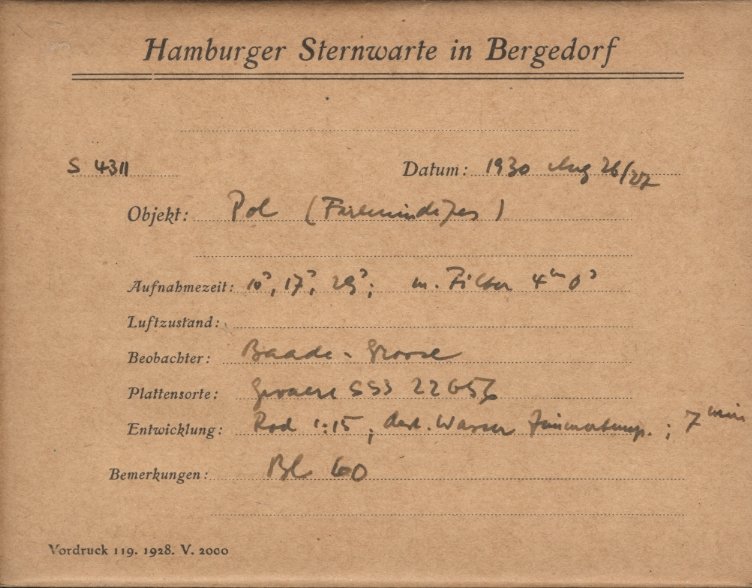 Hamburger Sternwarte in Bergedorf
S 4311 Datum: 1930 Aug 26/27
Objekt: Pol (Farbenindizes)
Aufnahmezeit: 10ˢ, 17ˢ, 29ˢ; m. Filter 4ᵐ 0ˢ
Luftzustand:
Beobachter: Baade - Groose
Plattensorte: Gevaert SSS 22656
Entwicklung: Rod 1:15, dest. Wasser Zimmertemp.; 7 min
Bemerkungen: Bl 60
Vordruck 119. 1928. V. 2000